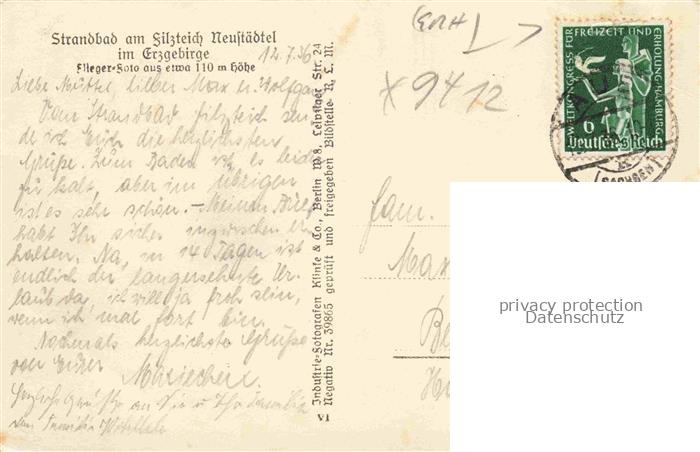 Strandbad am Filzteich Neustädtel
im Erzgebirge
Flieger-Foto aus etwa 110 m Höhe
12.7.36
Liebe Mutti, lieber Max u. Wolfgang
Vom Strandbad Filzteich sen
de ich Euch die herzlichsten
Grüße. Zum Baden ist es leider
zu kalt, aber im übrigen
ist es sehr schön. – Meinen Brief
habt Ihr sicher inzwischen er
halten. Na, in 14 Tagen ist
endlich der langersehnte Ur
laub da, ich will ja froh sein,
wenn ich mal fort bin.
Nochmals herzlichste Grüße
von Eurer
Mariechen
Herzliche Grüße an Sie u.
von
Industrie-Fotografen Klinke & Co., Berlin W 8, Leipziger Str. 24
Negativ Nr. 39865 geprüft und freigegeben Bildstelle R. L. M.
VI
x 9412
WELTKONGRESS FÜR FREIZEIT UND ERHOLUNG HAMBURG
6
Deutsches Reich
(SACHSEN)
Fam.
Max
Be
privacy protection
Datenschutz